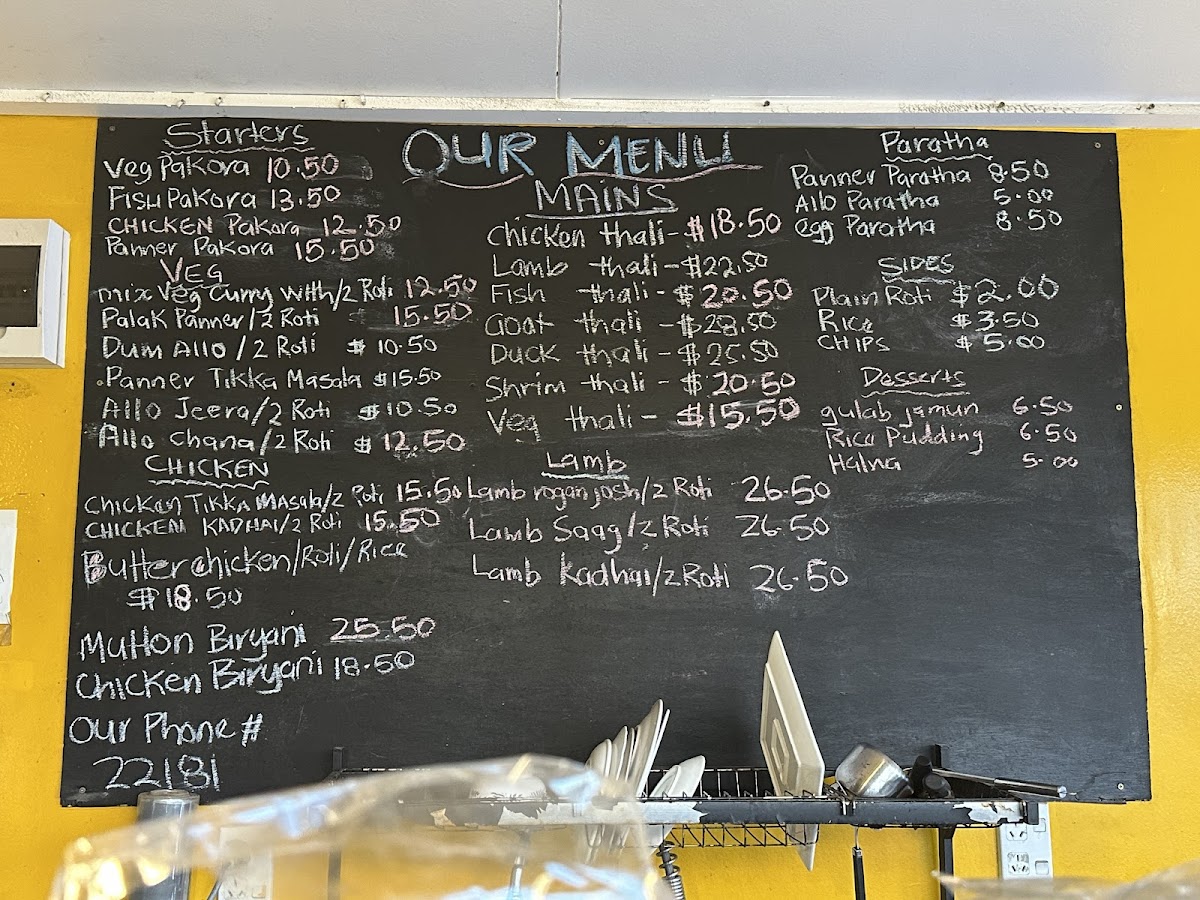 OUR MENU
Starters
Veg Pakora 10.50
Fish Pakora 13.50
CHICKEN Pakora 12.50
Panner Pakora 15.50
VEG
mix Veg Curry with/2 Roti 12.50
Palak Panner/2 Roti 15.50
Dum Allo/2 Roti $10.50
Panner Tikka Masala $15.50
Allo Jeera/2 Roti $10.50
Allo chana/2 Roti $12.50
CHICKEN
Chicken Tikka Masala/2 Roti 15.50
CHICKEN KADHAI/2 Roti 15.50
Butter chicken/Roti/Rice
$18.50
Mutton Biryani 25.50
Chicken Biryani 18.50
Our Phone #
22181
MAINS
Chicken thali-$18.50
Lamb thali-$22.50
Fish thali-$20.50
Goat thali-$28.50
Duck thali-$25.50
Shrim thali-$20.50
Veg thali-$15.50
Lamb
Lamb rogan josh/2 Roti 26.50
Lamb Saag/2 Roti 26.50
Lamb kadhai/2 Roti 26.50
Paratha
Panner Paratha 8.50
Allo Paratha 5.00
egg Paratha 8.50
SIDES
Plain Roti $2.00
Rice $3.50
CHIPS $5.00
Desserts
gulab jamun 6.50
Rice Pudding 6.50
Halwa 5.00